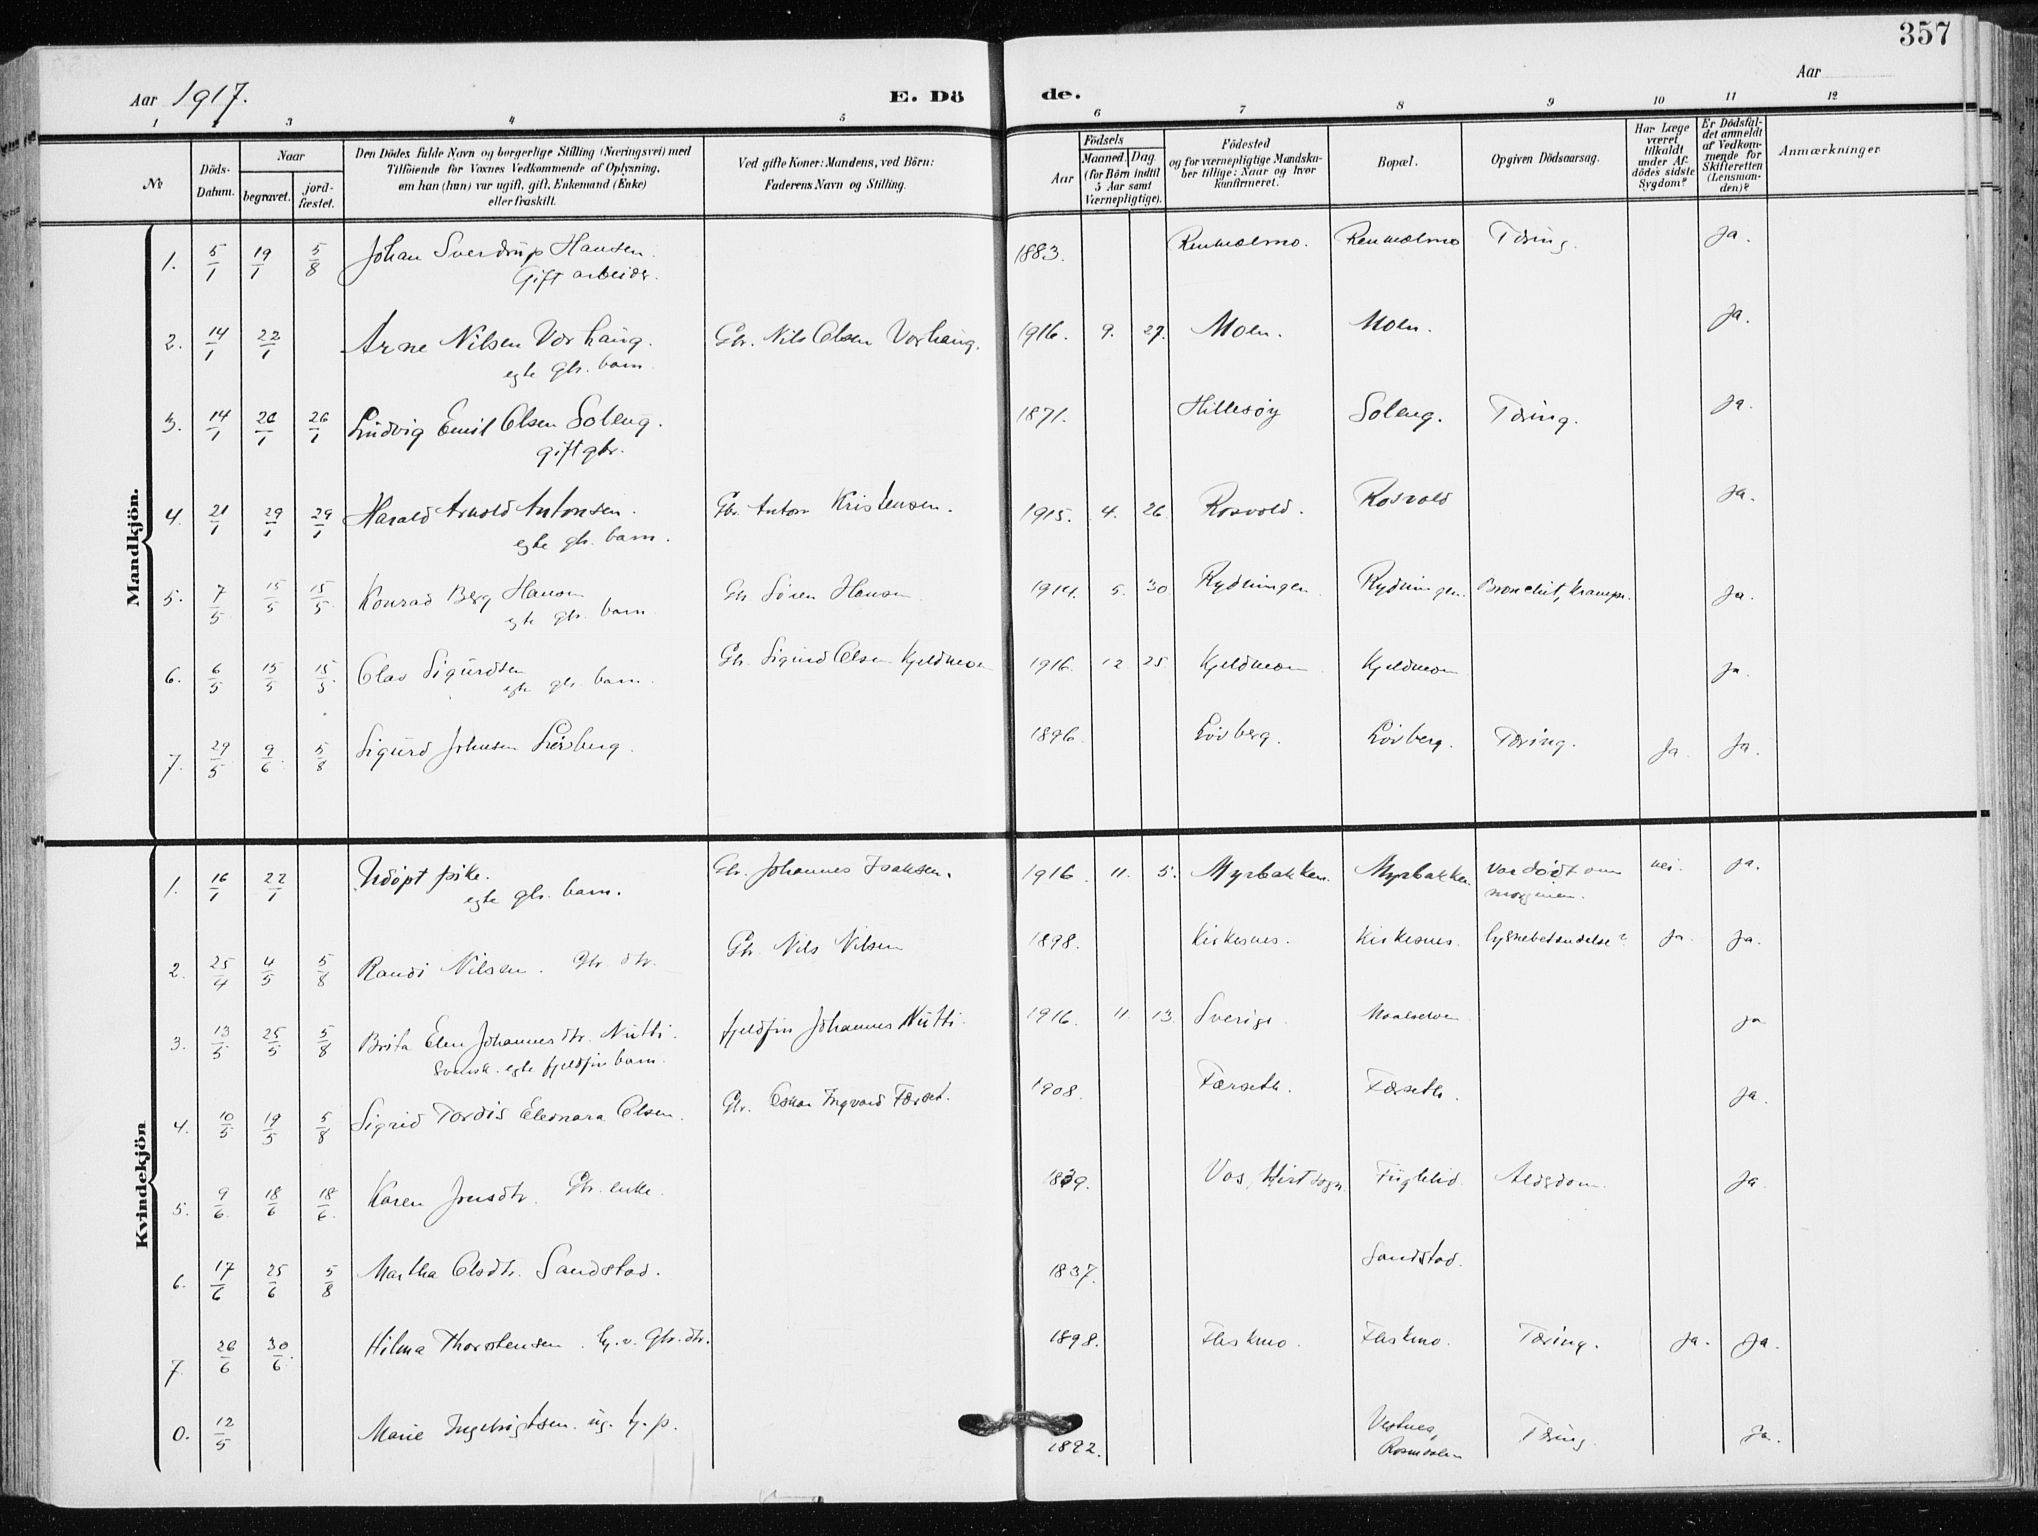 357
Aar 1917.
E. Döde.
Aar
1 2 3 4 5 6 7 8 9 10 11 12
№
Döds-Datum.
Naar
begravet.
jord-fæstet.
Den Dödes fulde Navn og borgerlige Stilling (Næringsvei) med
Tilföiende for Voxnes Vedkommende af Oplysning,
om han (hun) var ugift, gift, Enkemand (Enke)
eller fraskilt.
Ved gifte Koner: Mandens, ved Börn:
Faderens Navn og Stilling.
Födsels
Aar
Maaned. Dag.
(for Börn indtil
5 Aar samt
Værnepligtige).
Födested
og for værnepligtige Mandska-
ber tillige: Naar og hvor
konfirmeret.
Bopæl.
Opgiven Dödsaarsag.
Har Læge
været
tilkaldt
under Af-
dödes sidste
Sygdom?
Er Dödsfal-
det anmeldt
af Vedkom-
mende for
Skifteretten
(Lensman-
den)?
Anmærkninger
Mandkjön.
1. 5/1 19/1 5/8 Johan Sverdrup Hansen. 1883. Renmælmo. Renmælmo Tæring. Ja.
Gift arbeider.
2. 14/1 22/1 Arne Nilsen Vorhaug. Gbr. Nils Olsen Vorhaug. 1916. 9. 27. Moen. Moen. Ja.
egte gbr. barn.
3. 14/1 26/1 26/1 Ludvig Emil Olsen Soleng. 1871. Hillesøy Soleng. Tæring. Ja.
gift gbr.
4. 21/1 29/1 29/1 Harald Arnold Antonsen. Gbr. Anton Kristensen. 1915. 4. 26. Rosvold. Rosvold Ja.
egte gbr. barn.
5. 7/5 15/5 15/5 Konrad Berg Hansen Gbr. Sören Hansen. 1914. 5. 30. Rydningen. Rydningen. Bronchit, Ja.
egte gbr. barn.
6. 6/5 15/5 15/5 Olav Sigurdsen Gbr. Sigurd Olsen Kjeldmoen 1916. 12. 25. Kjeldmoen Kjeldmoen Ja.
egte gbr. barn.
7. 29/5 9/6 5/8 Sigurd Johnsen Lövberg. 1896. Lövberg. Lövberg. Tæring. Ja. Ja.
Kvindekjön
1. 16/1 22/1 Udöpt pike. Gbr. Johannes Isaksen. 1916. 11. 5. Myrbakken. Myrbakken. var dödt om nei. ja.
egte gbr. barn. morgenen.
2. 25/4 4/5 5/8 Randi Nilsen. Gbr. dtr. Gbr. Nils Nilsen 1898. Kirkesnes. Kirkesnes. Lungebetændelse? Ja. Ja.
3. 13/5 25/5 5/8 Brita Elen Johannesdtr. Nutti. fjeldfin Johannes Nutti. 1916. 11. 13. Sverige Maalselven ja
svensk. egte fjeldfin barn.
4. 10/5 19/5 5/8 Sigrid Tordis Eleonara Olsen. Gbr. Oskar Ingvard Færset. 1908. Færseth. Færseth. Ja.
5. 9/6 18/6 18/6 Karen Jensdtr. Gbr. enke. 1839. Vos, Fuglelid. Aldsdom. Ja.
6. 17/6 25/6 5/8 Martha Olsdtr. Sandstad. 1837. Sandstad.
7. 26/6 30/6 Hilma Thorstensen. hj. v. Gbr. dtr. 1898. Fleskmo. Fleskmo. Tæring. Ja. Ja.
0. 12/5 Marie Ingebrigtsen. ug. tj. p. 1892. Vestnes, Tæring. Ja.
Romsdalen